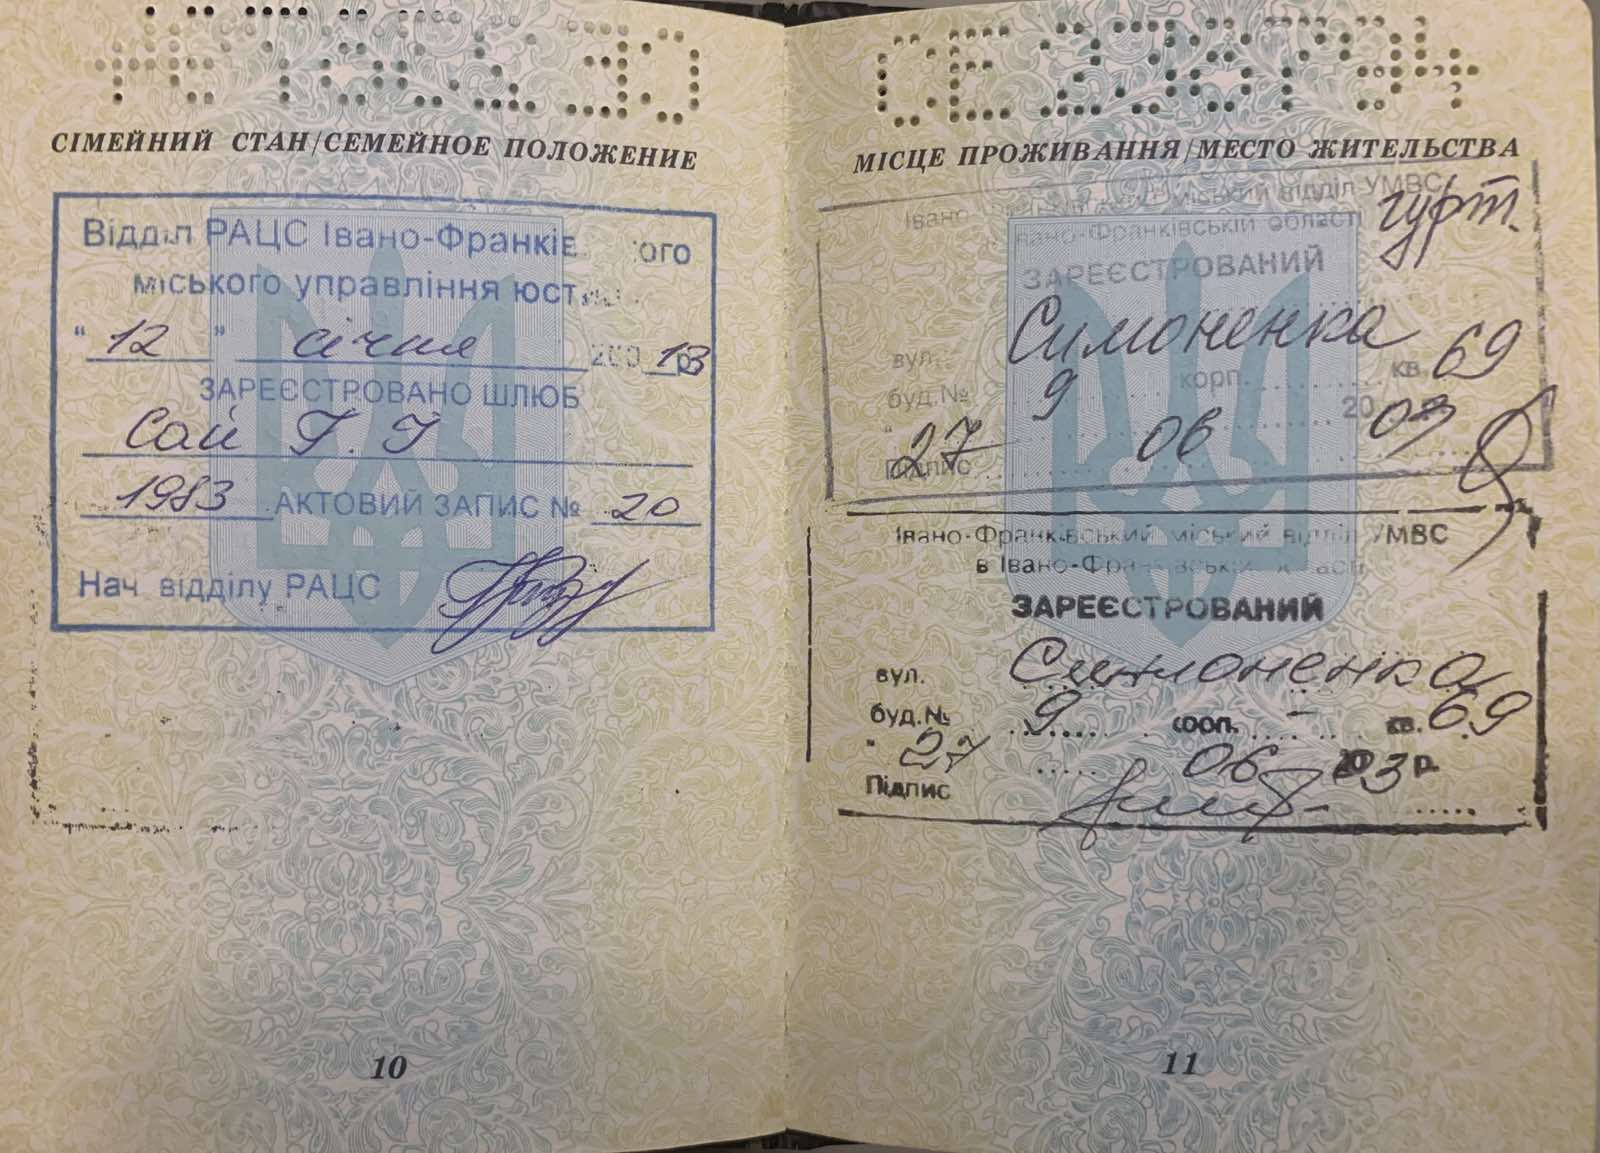 СЕ 278794
СІМЕЙНИЙ СТАН/СЕМЕЙНОЕ ПОЛОЖЕНИЕ
Відділ РАЦС Івано-Франків ого
міського управління юст
"12" січня 200 13 р
ЗАРЕЄСТРОВАНО ШЛЮБ
Сай Г. І
1983 АКТОВИЙ ЗАПИС № 20
Нач відділу РАЦС
10
МІСЦЕ ПРОЖИВАННЯ/МЕСТО ЖИТЕЛЬСТВА
Івано-Франківський міський відділ УМВС
Івано-Франківській області гурт.
ЗАРЕЄСТРОВАНИЙ
вул. Симоненка
буд.№ 9 корп. кв. 69
" 27 06 20 03
Підпис
Івано-Франківський міський відділ УМВС
в Івано-Франківській області
ЗАРЕЄСТРОВАНИЙ
вул. Симоненка
буд.№ 9 корп. - кв. 69
" 27 06 2003 р.
Підпис
11